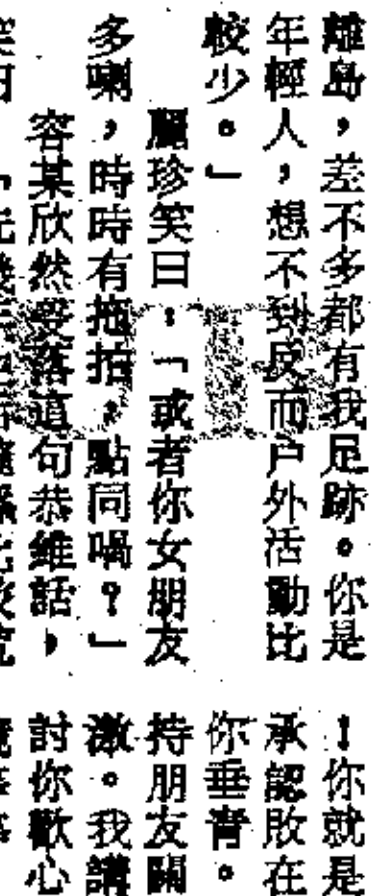 離島，差不多都有我足跡。你是
年輕人，想不到反而户外活動比
較少。」
麗珍笑曰：「或者你女朋友
多喇，時時有拖拍，點同喎？」
容某欣然受落這句恭維話，
！你就是
承認敗在
你垂青。
持朋友關
激。我講
討你歡心